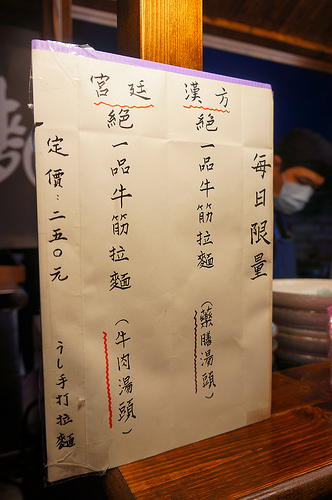 每日限量
漢方
絕一品牛筋拉麵（藥膳湯頭）
宮廷
絕一品牛筋拉麵（牛肉湯頭）
定價：二五〇元
うし手打拉麵